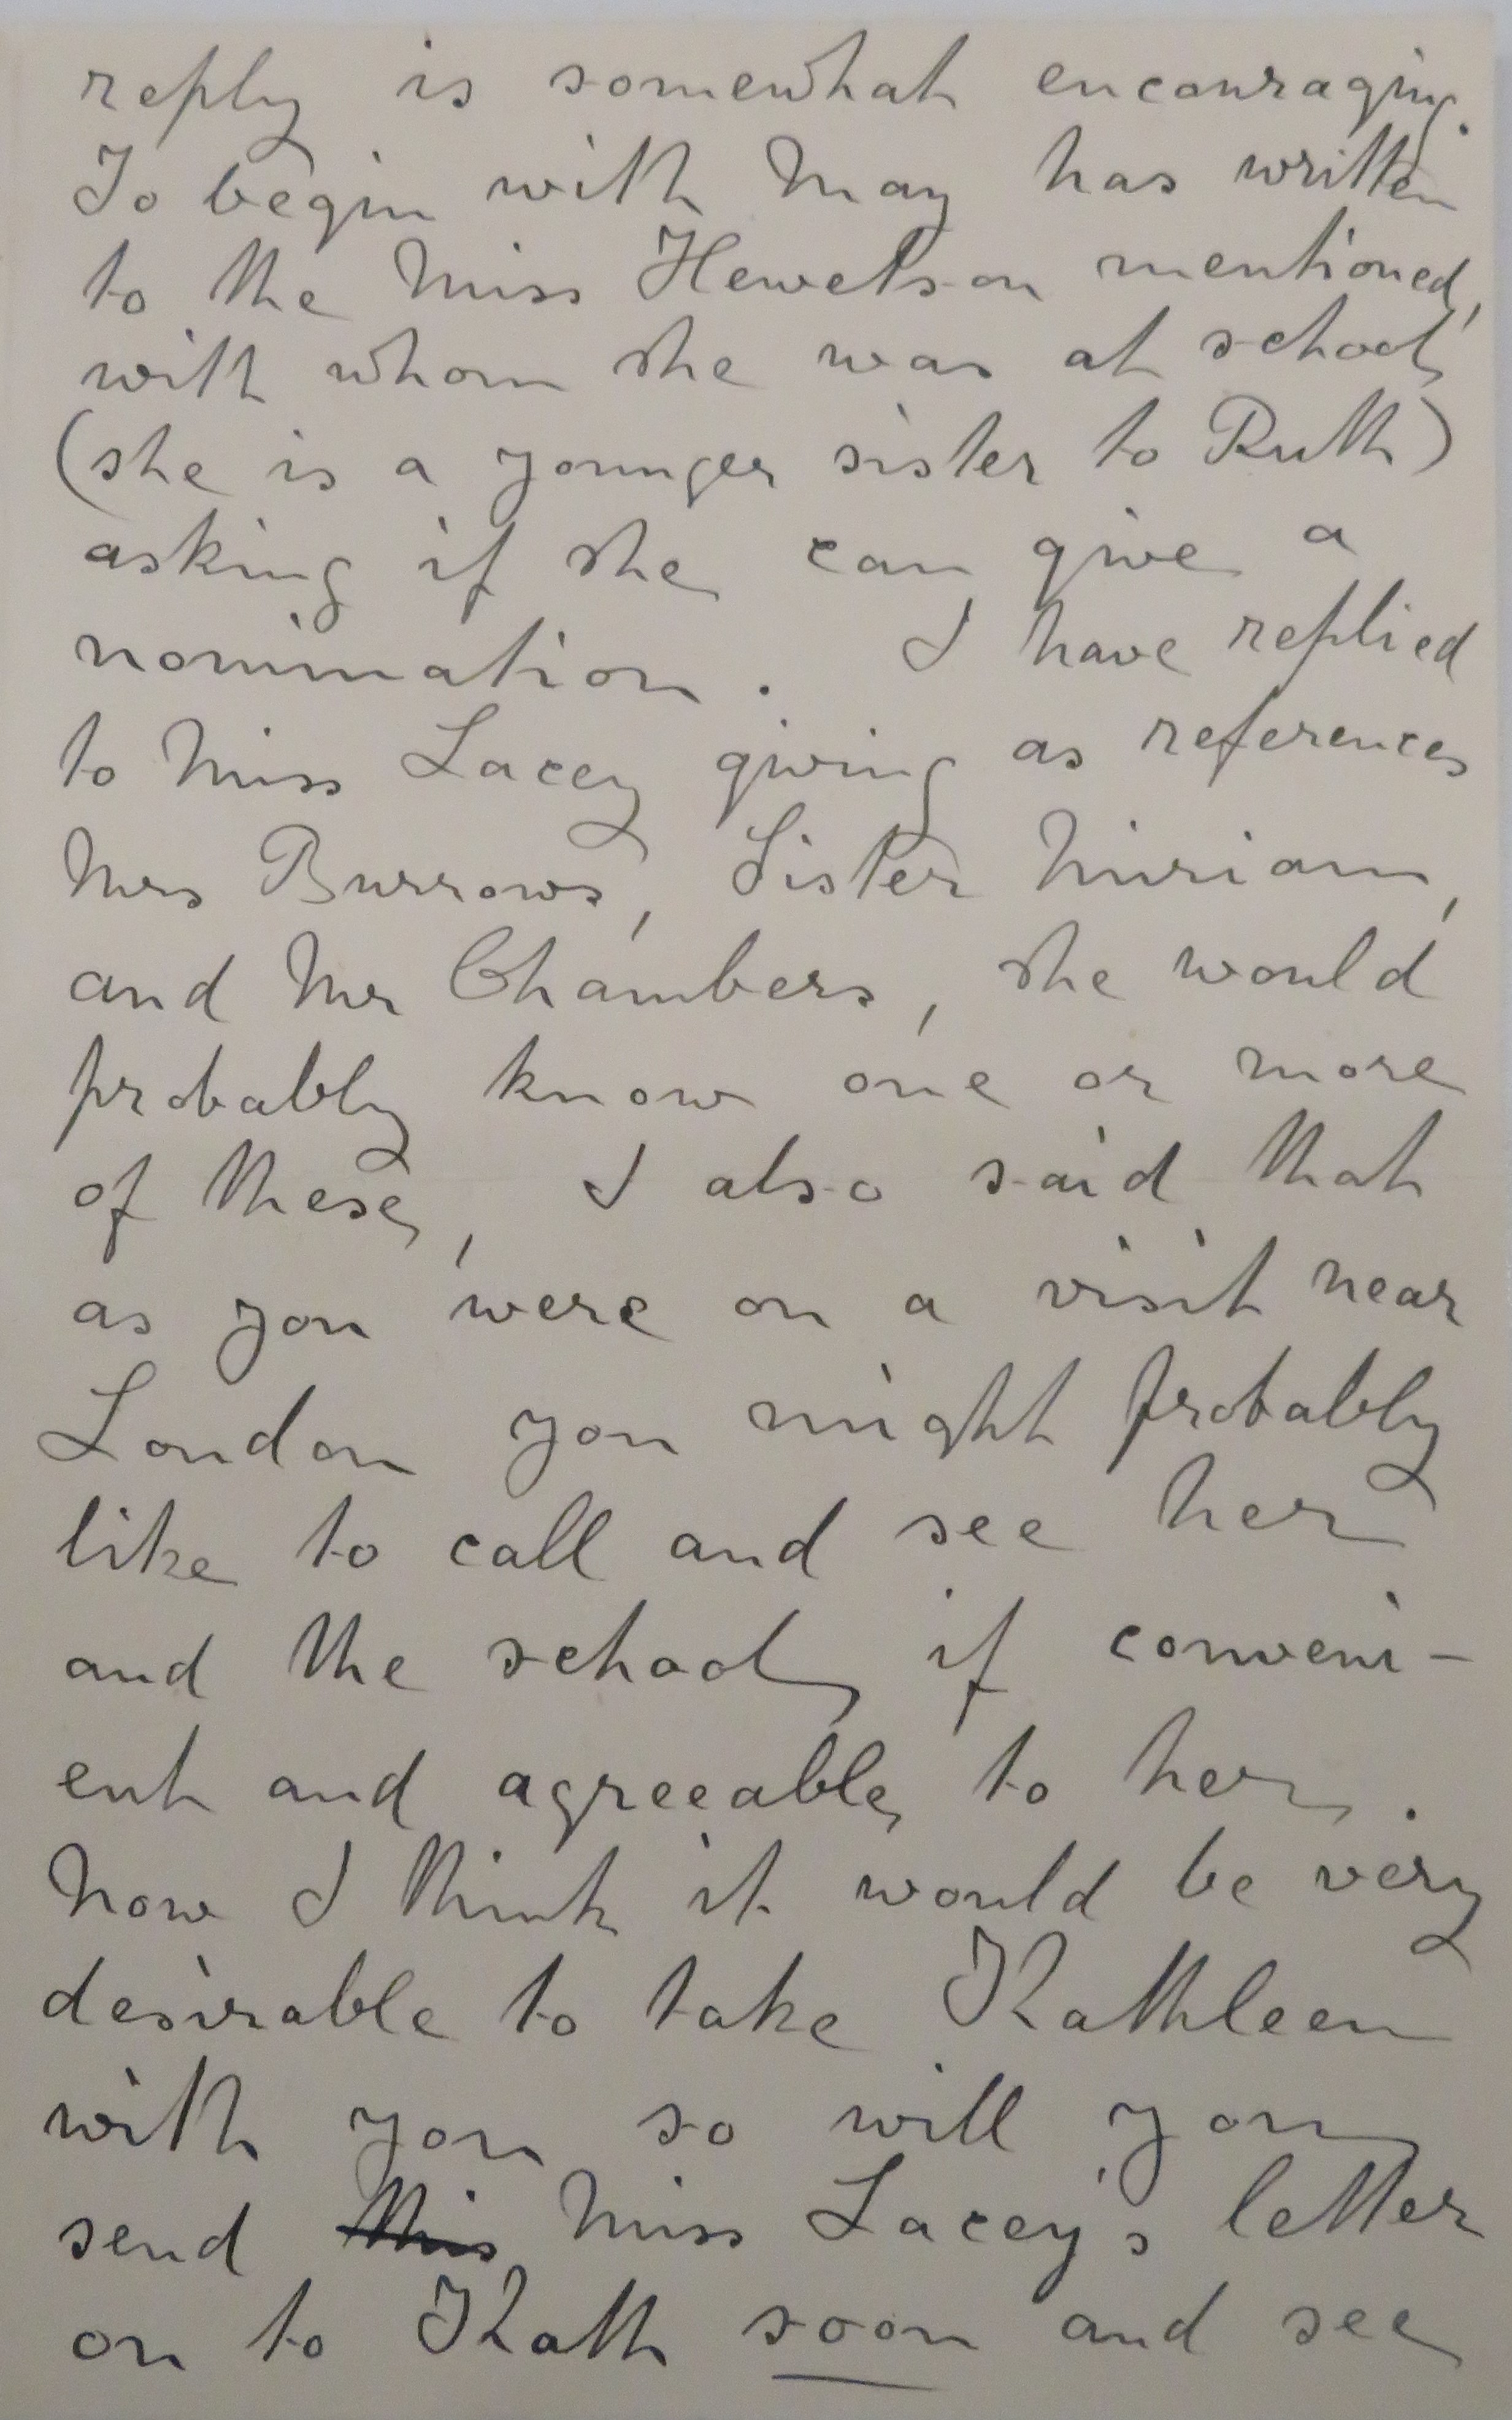 reply is somewhat encouraging.
To begin with May has written
to the Miss Hewetson mentioned,
with whom she was at school
(she is a younger sister to Ruth)
asking if she can give a
nomination. I have replied
to Miss Lacey giving as references
Mrs Burrows, Sister Miriam,
and Mr Chambers, she would
probably know one or more
of these, I also said that
as you were on a visit near
London you might probably
like to call and see her
and the school if conveni-
ent and agreeable to her.
Now I think it would be very
desirable to take Kathleen
with you so will you
send this Miss Lacey's letter
on to Kath soon and see